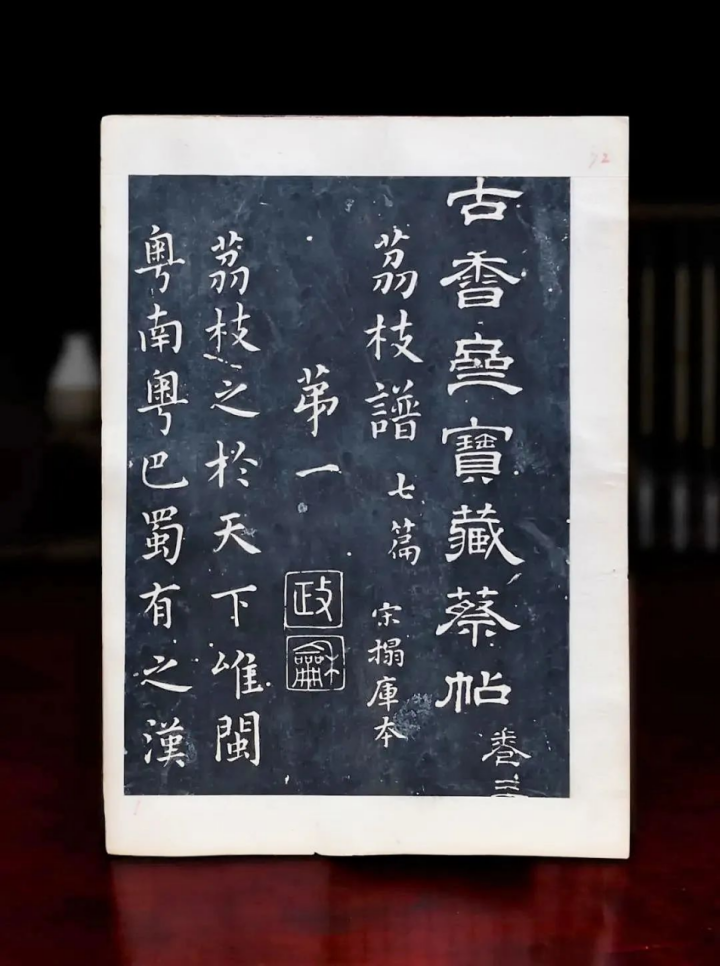 72
古香齋寶藏蔡帖 卷三
茘枝譜 七篇 宋搨庫本
苐一
政
龢
茘枝之於天下唯閩
粵南粵巴蜀有之漢